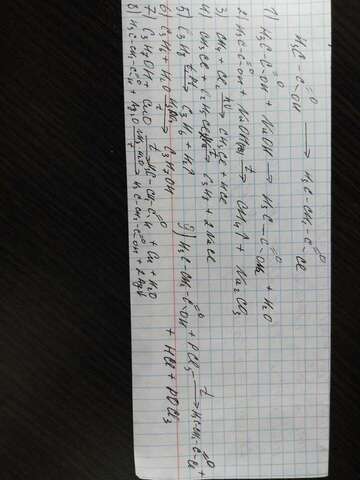 H₃C-C(=O)-OH ⟶ H₃C-CH₂-C(=O)-Cl
1) H₃C-C(=O)-OH + NaOH ⟶ H₃C-C(=O)-ONa + H₂O
2) H₃C-C(=O)-O + NaOH t⟶ CH₄↑ + Na₂CO₃
3) CH₄ + Cl₂ hν⟶ CH₃Cl + HCl
4) CH₃Cl + C₂H₅Cl ⟶ C₃H₈ + 2NaCl
5) C₃H₈ t, Pt⟶ C₃H₆ + H₂↑
6) C₃H₆ + H₂O ⟶ C₃H₇OH
7) C₃H₇OH + CuO t⟶ H₃C-CH₂-C(=O)-H + Cu + H₂O
8) H₃C-CH₂-C(=O)-H + Ag₂O ⟶ H₃C-CH₂-C(=O)-OH + 2Ag↓
9) H₃C-CH₂-C(=O)-OH + PCl₅ t⟶ H₃C-CH₂-C(=O)-Cl +
+ HCl + POCl₃